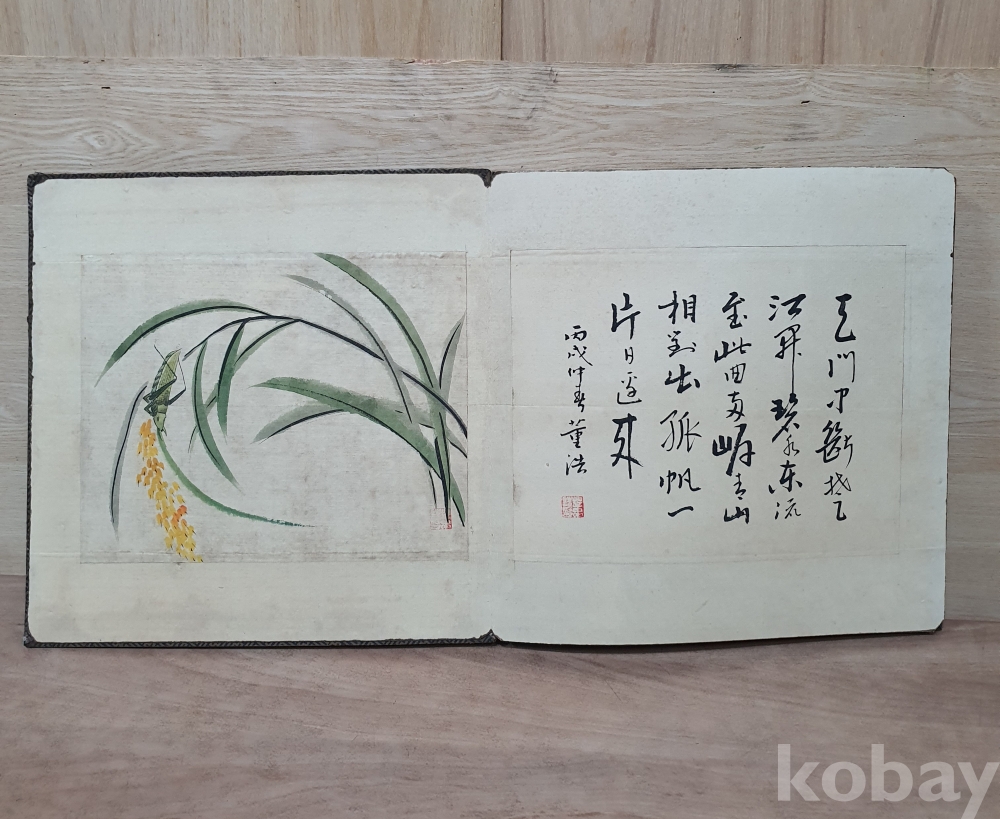 天门中斷楚
江开碧水东流
至此回两岸青山
相对出孤帆一
片日边来
丙戌仲春董浩
kobay